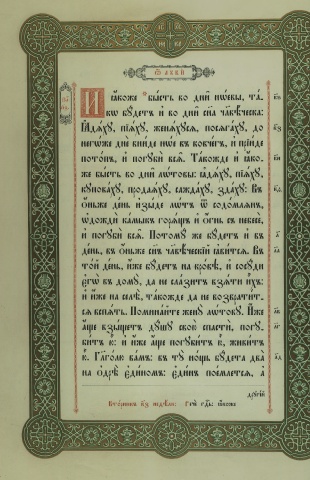 Ѿ лꙋкѝ
И҆ ꙗ҆́коже бы́сть во дни̑ нѡ́евы, та́-
кѡ бꙋ́детъ и҆ во дни̑ сн҃а чл҃вѣ́ческа:
Ꙗ҆дѧ́хꙋ, пїѧ́хꙋ, женѧ́хꙋсѧ, посѧга́хꙋ, до
негѡ́же днѐ вни́де нѡ́е въ ковче́гъ, и҆ прїи́де
пото́пъ, и҆ погꙋбѝ всѧ̑. Та́кожде и҆ ꙗ҆́ко-
же бы́сть во дни̑ лѡ́товы: ꙗ҆дѧ́хꙋ, пїѧ́хꙋ,
кꙋпова́хꙋ, продаѧ́хꙋ, сажда́хꙋ, зда́хꙋ: Въ
ѻ҆́ньже де́нь и҆зы́де лѡ́тъ ѿ содо́млѧнъ,
ѡ҆дождѝ ка́мыкъ горѧ́щь и҆ ѻ҆́гнь съ небесѐ,
и҆ погꙋбѝ всѧ̑. По томꙋ́же бꙋ́детъ и҆ въ
де́нь, въ ѻ҆́ньже сн҃ъ чл҃вѣ́ческїй ꙗ҆ви́тсѧ. Въ
то́й де́нь, и҆́же бꙋ́детъ на кро́вѣ, и҆ сосꙋ́ди
є҆гѡ̀ въ домꙋ̀, да не сла́зитъ взѧ́ти и҆̀хъ:
и҆ и҆́же на селѣ̀, та́кожде да не возврати́т-
сѧ вспѧ́ть. Помина́йте женꙋ̀ лѡ́товꙋ. И҆́же
а҆́ще взы́щетъ дꙋ́шꙋ свою̀ спⷭ҇тѝ, погꙋ-
би́тъ ю҆̀: и҆ и҆́же а҆́ще погꙋби́тъ ю҆̀, живи́тъ
ю҆̀. Глаго́лю ва́мъ: въ тꙋ̀ но́щь бꙋ́дета два̀
на ѻ҆дрѣ̀ є҆ди́номъ: є҆ди́нъ пое́млетсѧ, а҆
дрꙋгі́й